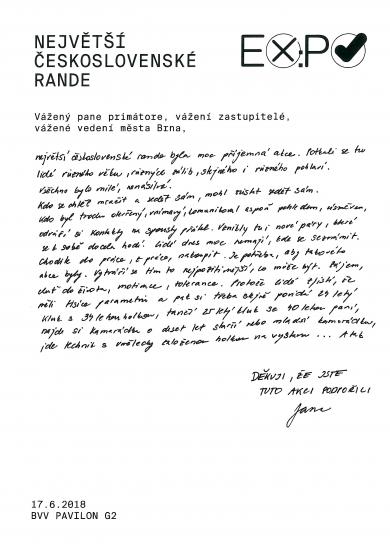 NEJVĚTŠÍ
ČESKOSLOVENSKÉ
RANDE
EX:PO
Vážený pane primátore, vážení zastupitelé,
vážené vedení města Brna,
největší československé rande byla moc příjemná akce. Potkali se tu
lidé různého věku, různých zálib, stejného i různého pohlaví.
Všechno bylo milé, nenásilné.
Kdo se chtěl mračit a sedět sám, mohl zůstat sedět sám.
Kdo byl trochu otevřený, vnímavý, komunikoval aspoň pohledem, úsměvem,
odnáší si kontakty na spoustu přátel. Vznikly tu i nové páry, které
se k sobě docela hodí. Lidé dnes moc nemají, kde se seznámit.
Chodí do práce, z práce, nakoupit. Je potřeba, aby takového
akce byly. Vytváří se tím to nejpozitivnější, co může být. Zájem,
chuť do života, motivace, tolerance. Protože lidé zjistí, že
měli tisíce parametrů a pak si třeba skvěle povídá 24 letý
kluk s 39 letou holkou, tančí 25 letý kluk se 40 letou paní,
najde si kamarádku o deset let starší nebo mladší kamarádku,
jde technik s umělecky založenou holkou na výstavu ... Atd.
DĚKUJI, ŽE JSTE
TUTO AKCI PODPOŘILI
Jana
17.6.2018
BVV PAVILON G2